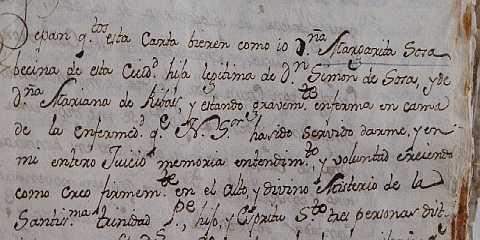 Sepan q.tos esta Carta bieren como io D.ña Margarita Sosa
becina de esta Ciud.d hija legitima de D.n Simon de Sosa, y de
D.ña Mariana de Ribas, y estando gravem.te enferma en cama
de la enfermed.d q.e N. S.or ha sido servido darme, y en
mi entero Juicio memoria entendim.to y voluntad creiendo
como creo firmem.te en el alto, y divino Misterio de la
Santis.ma trinidad P.e, hijo, y Espiritu S.to tres personas dist-